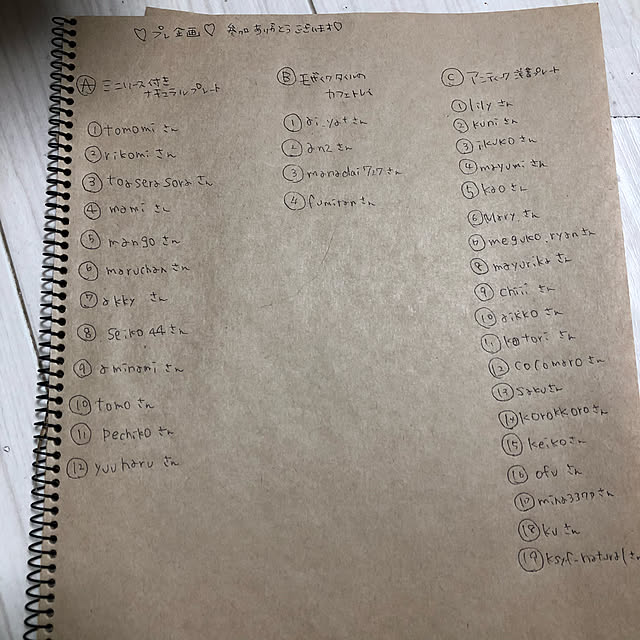 ♡ プレ企画 ♡ 参加ありがとうございます♡
Ⓐ ミニリース付き
ナチュラルプレート
① tomomi さん
② rikomi さん
③ toaserasora さん
④ mami さん
⑤ mango さん
⑥ maruchan さん
⑦ akky さん
⑧ seiko 44 さん
⑨ aminami さん
⑩ tomo さん
⑪ pechiko さん
⑫ yuuharu さん
Ⓑ モザイクタイルの
カフェトレイ
① ai_yat さん
② an2 さん
③ manadai727 さん
④ fumitan さん
Ⓒ アンティーク プレート
① lily さん
② kuni さん
③ ikuko さん
④ mayumi さん
⑤ kao さん
⑥ Mary さん
⑦ meguko.ryan さん
⑧ mayurika さん
⑨ chiii さん
⑩ aikko さん
⑪ kotori さん
⑫ cocomaro さん
⑬ saku さん
⑭ korokkoro さん
⑮ keiko さん
⑯ ofu さん
⑰ さん
⑱ ku さん
⑲ ksyf-natural さん